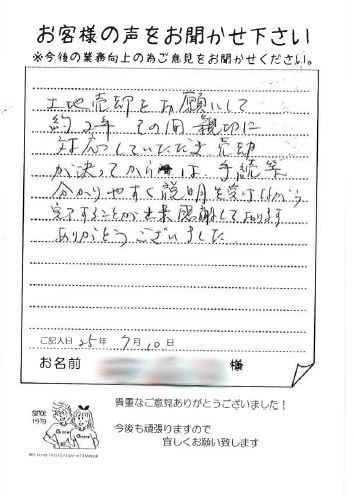 お客様の声をお聞かせ下さい
※今後の業務向上の為ご意見をお聞かせください。
土地売却をお願いして
約2年 その間 親切に
対応していただき 売却
が決ってからは、手続等
分かりやすく説明を受けながら
完了することが出来感謝しております
ありがとうございました
ご記入日 25年 7月 10日
お名前 様
貴重なご意見ありがとうございました!
今後も頑張りますので
宜しくお願い致します
SINCE
1979